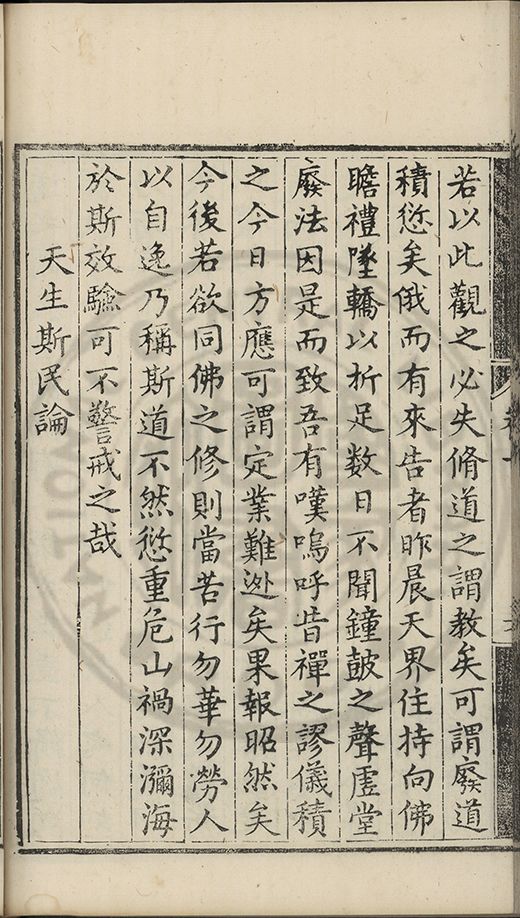 若以此觀之必失脩道之謂教矣可謂廢道
積愆矣俄而有來告者昨晨天界住持向佛
瞻禮墜轎以折足數日不聞鐘鼓之聲虛堂
廢法因是而致吾有嘆嗚呼昔禪之謬儀積
之今日方應可謂定業難迯矣果報昭然矣
今後若欲同佛之修則當苦行勿華勿勞人
以自逸乃稱斯道不然愆重危山禍深瀰海
於斯效驗可不警戒之哉
天生斯民論